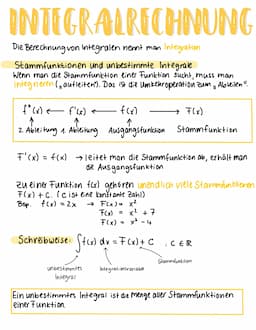 INTEGRALRECHNUNG
Die Berechnung von Integralen nennt man Integration
Stammfunktionen und unbestimmte Integrale
Wenn man die Stammfunktion einer Funktion sucht, muss man
integrieren („aufleiten“). Das ist die Umkehroperation zum „Ableiten“.
f''(x) ← f'(x) ← f(x) → F(x)
2. Ableitung 1. Ableitung Ausgangsfunktion Stammfunktion
F'(x) = f(x) → leitet man die Stammfunktion ab, erhält man
die Ausgangsfunktion
Zu einer Funktion f(x) gehören unendlich viele Stammfunktionen
F(x) + C. (C ist eine konstante Zahl)
Bsp. f(x) = 2x → F(x) = x²
F(x) = x² + 7
F(x) = x² - 4
Schreibweise: ∫f(x) dx = F(x) + C , C ∈ ℝ
unbestimmtes Integral
Integrationsvariable
Stammfunktion
Ein unbestimmtes Integral ist die Menge aller Stammfunktionen
einer Funktion.